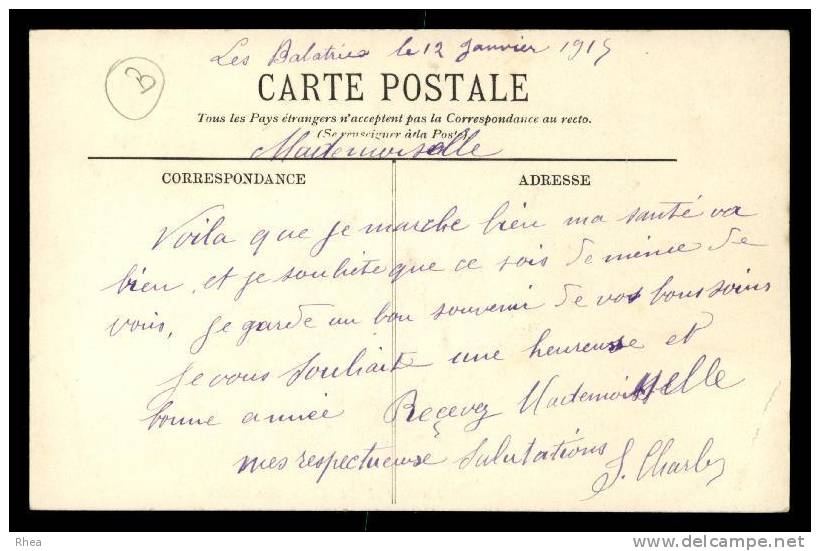 B
Les Balatries le 12 Janvier 1915
CARTE POSTALE
Tous les Pays étrangers n'acceptent pas la Correspondance au recto.
(Se renseigner à la Poste)
Mademoiselle
CORRESPONDANCE
ADRESSE
Voila que je marche bien ma santé va
bien, et je souhete que ce sois de même de
vous, je garde un bon souvenir de vos bons soins
je vous souhaite une heureuse et
bonne année Reçevez Mademoiselle
mes respectueuse Salutations
S. Charles
Rhea
www.delcampe.net